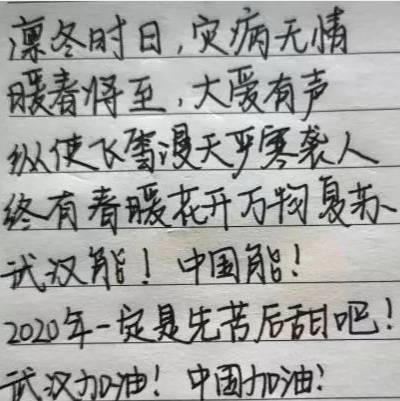 凛冬时日,灾病无情
暖春将至,大爱有声
纵使飞雪漫天严寒袭人
终有春暖花开万物复苏
武汉能!中国能!
2020年一定是先苦后甜吧!
武汉加油!中国加油!